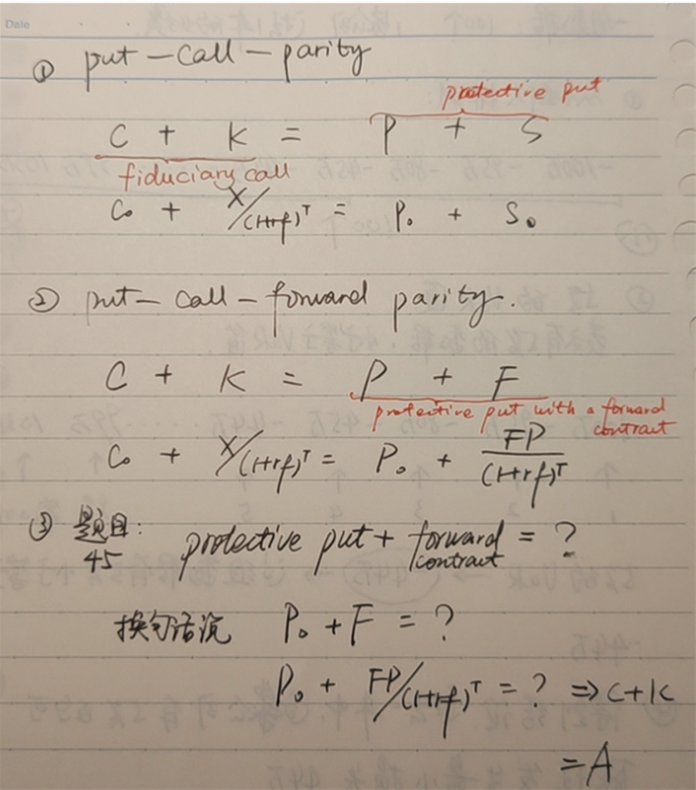 Date
① put-call-parity
protective put
C + K = P + S
fiduciary call
C₀ + X/(1+rf)ᵀ = P₀ + S₀
② put-call-forward parity.
C + K = P + F
protective put with a forward contract
C₀ + X/(1+rf)ᵀ = P₀ + FP/(1+rf)ᵀ
③ 题目: 45 protective put + forward contract = ?
换句话说 P₀ + F = ?
P₀ + FP/(1+rf)ᵀ = ? ⇒ C+K
= A